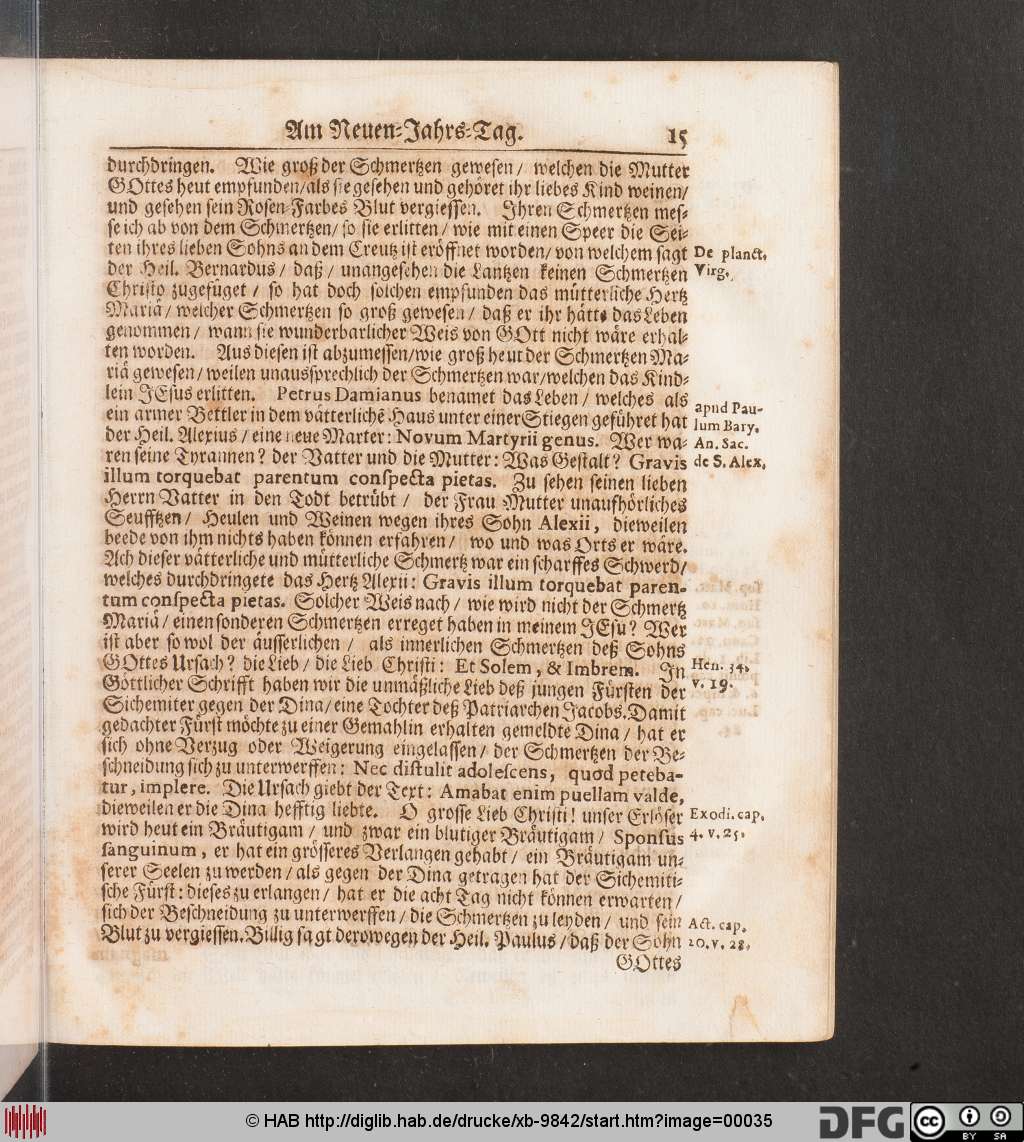 Am Neuen-Jahrs-Tag. 15
durchdringen. Wie groß der Schmertzen gewesen / welchen die Mutter
GOttes heut empfunden/als sie gesehen und gehöret ihr liebes Kind weinen/
und gesehen sein Rosen-Farbes Blut vergiessen. Ihren Schmertzen mes-
se ich ab von dem Schmertzen/ so sie erlitten / wie mit einen Speer die Sei-
ten ihres lieben Sohns an dem Creutz ist eröffnet worden/ von welchem sagt
De planct.
der Heil. Bernardus / daß / unangesehen die Lantzen keinen Schmertzen
Virg.
Christo zugefüget / so hat doch solchen empfunden das mütterliche Hertz
Mariä / welcher Schmertzen so groß gewesen / daß er ihr hätte das Leben
genommen / wann sie wunderbarlicher Weis von GOtt nicht wäre erhal-
ten worden. Aus diesen ist abzumessen/wie groß heut der Schmertzen Ma-
riä gewesen / weilen unaussprechlich der Schmertzen war/welchen das Kind-
lein JEsus erlitten. Petrus Damianus benamet das Leben / welches als
ein armer Bettler in dem vätterlichē Haus unter einer Stiegen geführet hat
apud Pau-
lum Bary.
der Heil. Alexius / eine neue Marter: Novum Martyrii genus. Wer wa-
An. Sac.
ren seine Tyrannen? der Vatter und die Mutter: Was Gestalt? Gravis
de S. Alex.
illum torquebat parentum conspecta pietas. Zu sehen seinen lieben
Herrn Vatter in den Todt betrübt / der Frau Mutter unaufhörliches
Seufftzen / Heulen und Weinen wegen ihres Sohn Alexii, dieweilen
beede von ihm nichts haben können erfahren / wo und was Orts er wäre.
Ach dieser vätterliche und mütterliche Schmertz war ein scharffes Schwerd/
welches durchdringete das Hertz Alexii: Gravis illum torquebat paren-
tum conspecta pietas. Solcher Weis nach / wie wird nicht der Schmertz
Mariä / einen sonderen Schmertzen erreget haben in meinem JEsu? Wer
ist aber so wol der äusserlichen / als innerlichen Schmertzen deß Sohns
GOttes Ursach? die Lieb / die Lieb Christi: Et Solem, & Imbrem. In
Hen. 34.
Göttlicher Schrifft haben wir die unmäßliche Lieb deß jungen Fürsten der
v. 19.
Sichemiter gegen der Dina/ eine Tochter deß Patriarchen Jacobs. Damit
gedachter Fürst möchte zu einer Gemahlin erhalten gemeldte Dina / hat er
sich ohne Verzug oder Weigerung eingelassen / der Schmertzen der Be-
schneidung sich zu unterwerffen: Nec distulit adolescens, quod peteba-
tur, implere. Die Ursach giebt der Text: Amabat enim puellam valde,
dieweilen er die Dina hefftig liebte. O grosse Lieb Christi! unser Erlöser
Exodi. cap.
wird heut ein Bräutigam / und zwar ein blutiger Bräutigam / Sponsus
4. v. 25.
sanguinum, er hat ein grösseres Verlangen gehabt / ein Bräutigam un-
serer Seelen zu werden / als gegen der Dina getragen hat der Sichemiti-
sche Fürst: dieses zu erlangen / hat er die acht Tag nicht können erwarten /
sich der Beschneidung zu unterwerffen / die Schmertzen zu leyden / und sein
Act. cap.
Blut zu vergiessen. Billig sagt derowegen der Heil. Paulus / daß der Sohn
20. v. 28.
GOttes
© HAB http://diglib.hab.de/drucke/xb-9842/start.htm?image=00035
DFG
cc BY SA